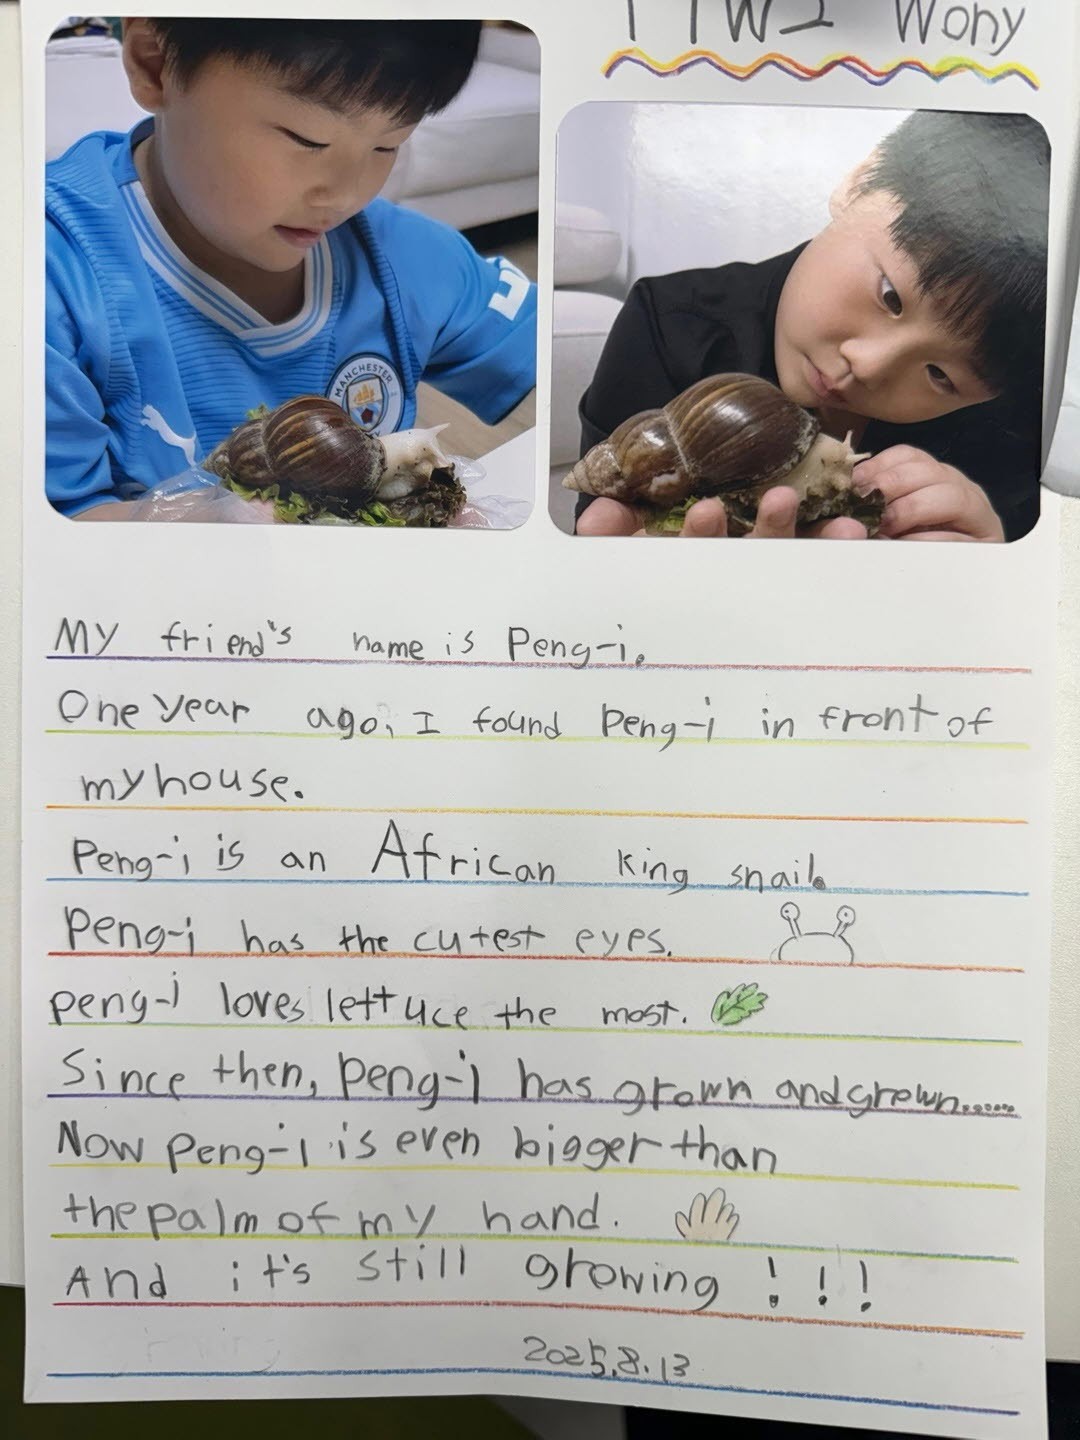 Wony
MANCHESTER
My friend's name is Peng-i.
One year ago, I found Peng-i in front of
my house.
Peng-i is an African king snail.
Peng-i has the cutest eyes.
peng-i loves lettuce the most.
Since then, peng-i has grown and grown......
Now peng-i is even bigger than
the palm of my hand.
And it's still growing !!!
2025.8.13